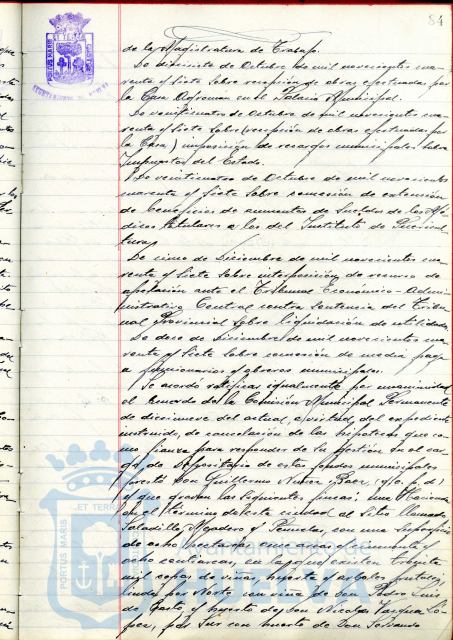 84
de la Magistratura de Trabajo.
De diecisiete de Octubre de mil novecientos cua-
renta y siete sobre recepción de obras efectuadas por
la Casa Agroman en el Palacio Municipal.
De veinticuatro de Octubre de mil novecientos cua-
renta y siete sobre (recepción de obras efectuadas por
la Casa) imposición de recargos municipales sobre
Impuestos del Estado.
De veinticuatro de Octubre de mil novecientos
cuarenta y siete sobre concesión de extensión
de beneficios de aumentos de sueldos de los Mé-
dicos titulares a los del Instituto de Puericul-
tura.
De cinco de Diciembre de mil novecientos cua-
renta y siete sobre interposición de recurso de
apelación ante el Tribunal Económico-Admi-
nistrativo Central contra sentencia del Tribu-
nal Provincial sobre liquidación de utilidades.
De doce de Diciembre de mil novecientos cua-
renta y siete sobre concesión de media paga
a funcionarios y obreros municipales.
Se acordó ratificar igualmente por unanimidad
el acuerdo de la Comisión Municipal Permanente
de diecinueve del actual, a virtud del expediente
instruido, de cancelación de las hipotecas que co-
mo fianza para responder de su gestión en el car-
go de Depositario de estos fondos municipales
prestó Don Guillermo
y que gravan las siguientes fincas: Una Hacienda
en el término de esta ciudad al sitio llamado
Saladillo, con una superficie
de ocho hectáreas,
ocho centiáreas, en la que existen treinta
mil cepas de viña, huerta y arboles frutales,
linda por Norte con viña de Don Pedro Luis
de y huerto de Don Nicolás Vazquez Ló-
pez, por Sur con huerto de Don Fernando
PORTUS MARIS
ET TERRAE
Ayuntamiento de
HUELVA